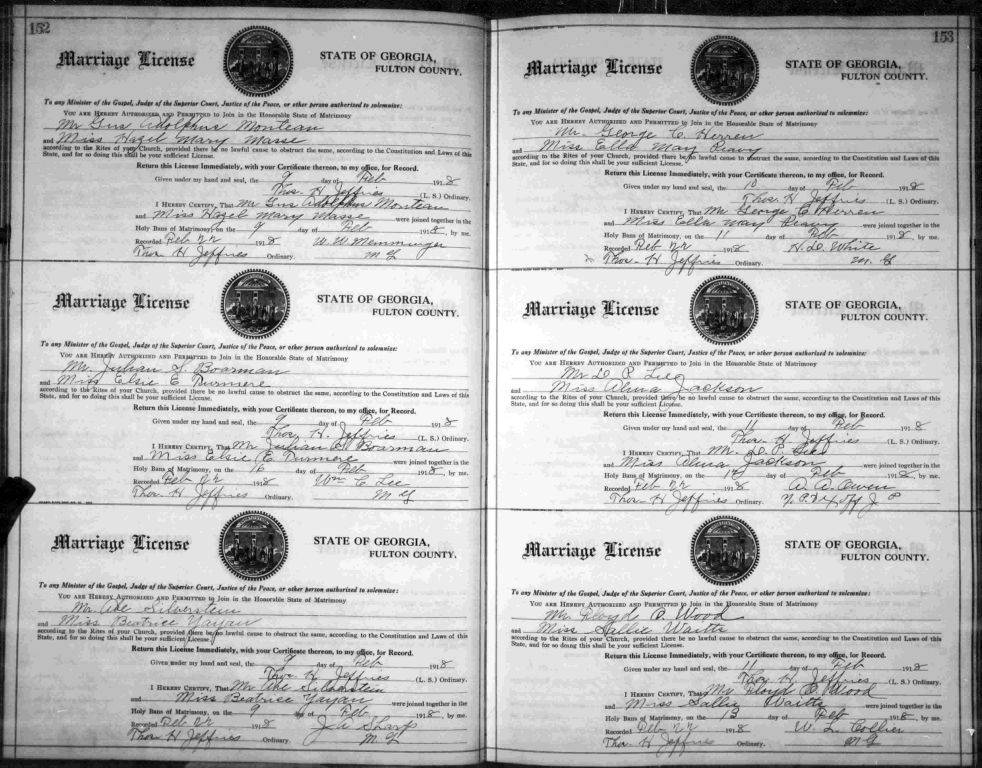 152
Marriage License
STATE OF GEORGIA,
FULTON COUNTY.
To any Minister of the Gospel, Judge of the Superior Court, Justice of the Peace, or other person authorized to solemnize:
YOU ARE HEREBY AUTHORIZED AND PERMITTED to Join in the Honorable State of Matrimony
Mr Gus Adolphus Monteau
and Miss Hazel Mary Masse
according to the Rites of your Church, provided there be no lawful cause to obstruct the same, according to the Constitution and Laws of this
State, and for so doing this shall be your sufficient License.
Return this License Immediately, with your Certificate thereon, to my office, for Record.
Given under my hand and seal, the 9 day of Feb 1918
Thos. H Jeffries (L. S.) Ordinary.
I HEREBY CERTIFY, That Mr Gus Adolphus Monteau
and Miss Hazel Mary Masse were joined together in the
Holy Bans of Matrimony, on the 9 day of Feb 1918, by me.
Recorded Feb 22 1918 W. W. Memminger
Thos H Jeffries Ordinary. M G
Marriage License
STATE OF GEORGIA,
FULTON COUNTY.
To any Minister of the Gospel, Judge of the Superior Court, Justice of the Peace, or other person authorized to solemnize:
YOU ARE HEREBY AUTHORIZED AND PERMITTED to Join in the Honorable State of Matrimony
Mr. Julian S. Boarman
and Miss Elsie E Durmere
according to the Rites of your Church, provided there be no lawful cause to obstruct the same, according to the Constitution and Laws of this
State, and for so doing this shall be your sufficient License.
Return this License Immediately, with your Certificate thereon, to my office, for Record.
Given under my hand and seal, the 9 day of Feb 1918
Thos. H. Jeffries (L. S.) Ordinary.
I HEREBY CERTIFY, That Mr Julian Boarman
and Miss Elsie E. Durmere were joined together in the
Holy Bans of Matrimony, on the 16 day of Feb 1918, by me.
Recorded Feb 22 1918 Wm C. Lee
Thos H Jeffries Ordinary. M G
Marriage License
STATE OF GEORGIA,
FULTON COUNTY.
To any Minister of the Gospel, Judge of the Superior Court, Justice of the Peace, or other person authorized to solemnize:
YOU ARE HEREBY AUTHORIZED AND PERMITTED to Join in the Honorable State of Matrimony
Mr Abe Silverstein
and Miss Beatrice Yayan
according to the Rites of your Church, provided there be no lawful cause to obstruct the same, according to the Constitution and Laws of this
State, and for so doing this shall be your sufficient License.
Return this License Immediately, with your Certificate thereon, to my office, for Record.
Given under my hand and seal, the 9 day of Feb 1918
Thos. H Jeffries (L. S.) Ordinary.
I HEREBY CERTIFY, That Mr Abe Silverstein
and Miss Beatrice Yayan were joined together in the
Holy Bans of Matrimony, on the 9 day of Feb 1918, by me.
Recorded Feb 22 1918 Sharp
Thos H Jeffries Ordinary. M G
153
Marriage License
STATE OF GEORGIA,
FULTON COUNTY.
To any Minister of the Gospel, Judge of the Superior Court, Justice of the Peace, or other person authorized to solemnize:
YOU ARE HEREBY AUTHORIZED AND PERMITTED to Join in the Honorable State of Matrimony
Mr. George C. Herren
and Miss Ella May Peavy
according to the Rites of your Church, provided there be no lawful cause to obstruct the same, according to the Constitution and Laws of this
State, and for so doing this shall be your sufficient License.
Return this License Immediately, with your Certificate thereon, to my office, for Record.
Given under my hand and seal, the 10 day of Feb 1918
Thos. H Jeffries (L. S.) Ordinary.
I HEREBY CERTIFY, That Mr George C. Herren
and Miss Ella May Peavy were joined together in the
Holy Bans of Matrimony, on the 11 day of Feb 1918, by me.
Recorded Feb 22 1918 H. D. White
Thos. H Jeffries Ordinary. M. G
Marriage License
STATE OF GEORGIA,
FULTON COUNTY.
To any Minister of the Gospel, Judge of the Superior Court, Justice of the Peace, or other person authorized to solemnize:
YOU ARE HEREBY AUTHORIZED AND PERMITTED to Join in the Honorable State of Matrimony
Mr D P Lee
and Miss Alma Jackson
according to the Rites of your Church, provided there be no lawful cause to obstruct the same, according to the Constitution and Laws of this
State, and for so doing this shall be your sufficient License.
Return this License Immediately, with your Certificate thereon, to my office, for Record.
Given under my hand and seal, the 11 day of Feb 1918
Thos. H Jeffries (L. S.) Ordinary.
I HEREBY CERTIFY, That Mr. D. P. Lee
and Miss Alma Jackson were joined together in the
Holy Bans of Matrimony, on the day of Feb 1918, by me.
Recorded Feb 22 1918 Owen
Thos. H Jeffries Ordinary. J P
Marriage License
STATE OF GEORGIA,
FULTON COUNTY.
To any Minister of the Gospel, Judge of the Superior Court, Justice of the Peace, or other person authorized to solemnize:
YOU ARE HEREBY AUTHORIZED AND PERMITTED to Join in the Honorable State of Matrimony
Mr. Floyd O. Wood
and Miss Sallie Waitts
according to the Rites of your Church, provided there be no lawful cause to obstruct the same, according to the Constitution and Laws of this
State, and for so doing this shall be your sufficient License.
Return this License Immediately, with your Certificate thereon, to my office, for Record.
Given under my hand and seal, the 11 day of Feb 1918
Thos H. Jeffries (L. S.) Ordinary.
I HEREBY CERTIFY, That Mr Floyd O. Wood
and Miss Sallie Waitts were joined together in the
Holy Bans of Matrimony, on the 13 day of Feb 1918, by me.
Recorded Feb 22 1918 W. L. Collier
Thos. H Jeffries Ordinary. M G